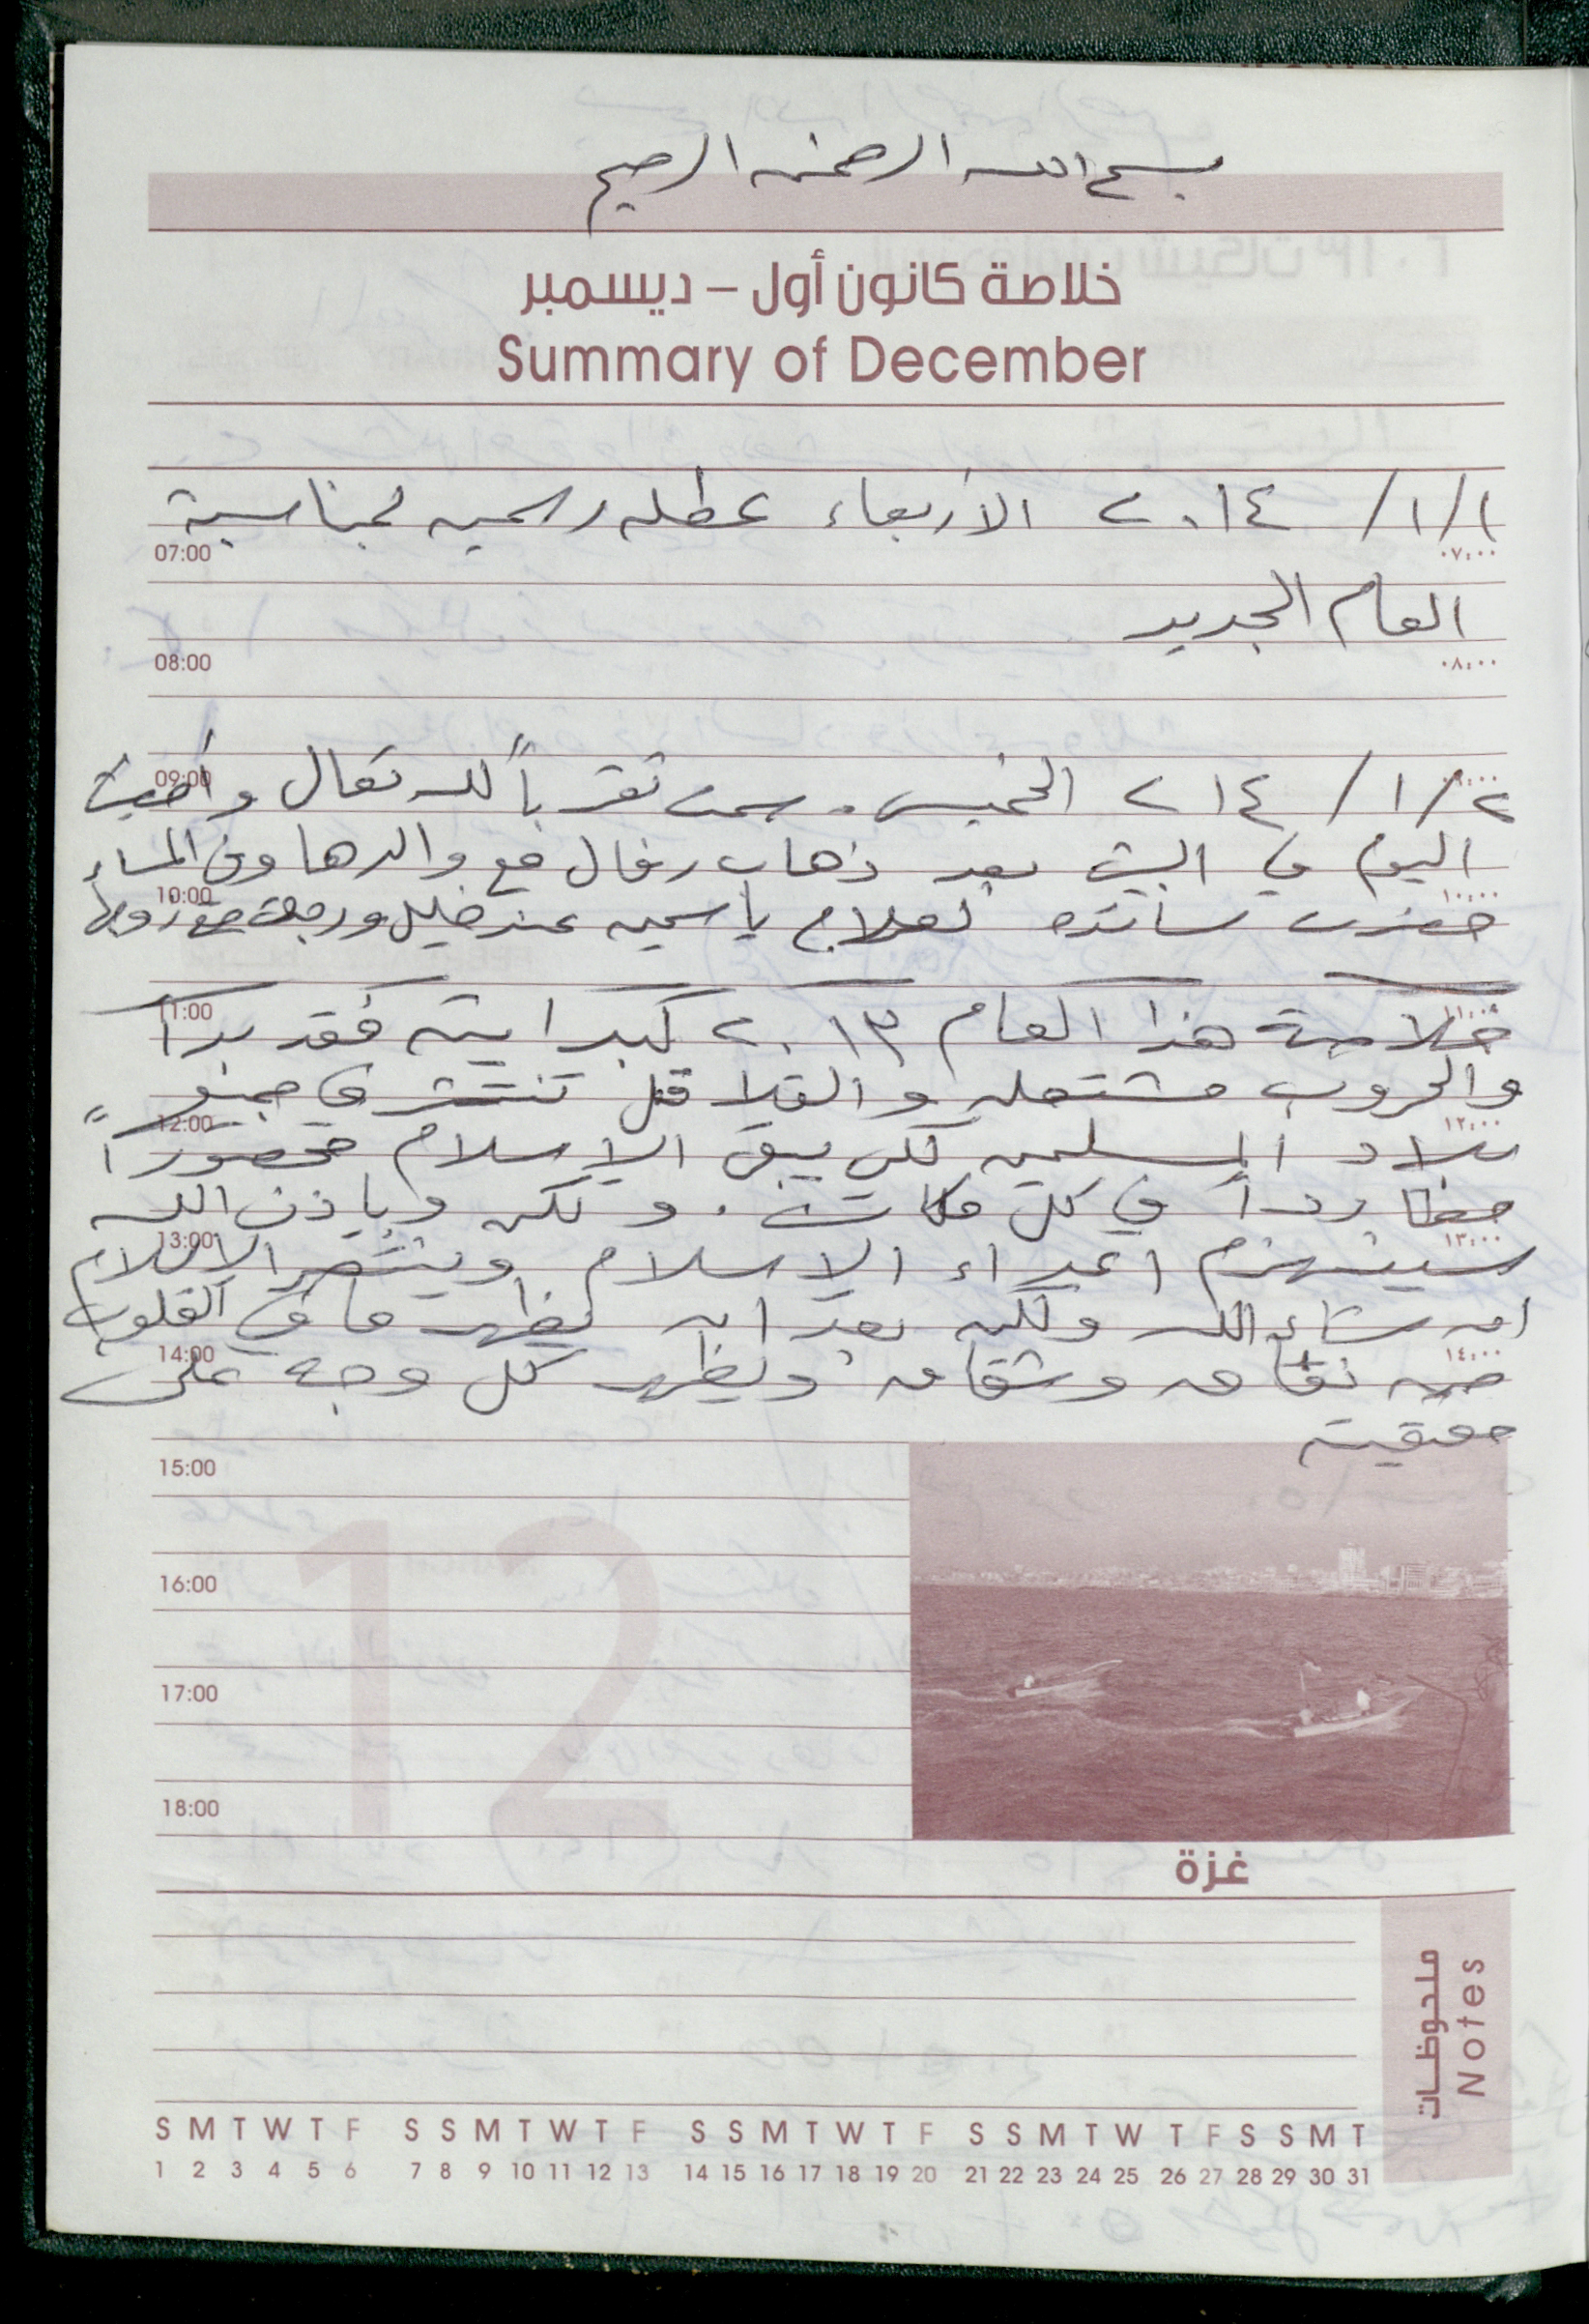 بسم الله الرحمن الرحيم
خلاصة كانون أول – ديسمبر
Summary of December
١/١/ ٢٠١٤ الأربعاء عطله رسميه لمناسبة
07:00 ٠٧:٠٠
العام الجديد
08:00 ٠٨:٠٠
٢/١/ ٢١٤ الخميس. صمت تقرباً لله تعالى وأمضيت
09:00 ٠٩:٠٠
اليوم في البيت بعد ذهاب رنال مع والدها وفي المساء
10:00 ١٠:٠٠
حضرت ساندة لعلاج ياسمين عند خليل ورجعت مع زوجها
خلاصة هذا العام ٢٠١٣ كبدايته فقد بدأ
11:00 ١١:٠٠
والحروب مشتعله والقلاقل تنتشر في جميع
12:00 ١٢:٠٠
بلاد المسلمين لكي يبقى الإسلام محصوراً
مطارداً في كل مكان. ولكن وبإذن الله
13:00 ١٣:٠٠
سينهزم اعداء الإسلام وينتصر الإسلام
ان شاء الله ولكن بعد ان يظهر ما في القلوب
14:00 ١٤:٠٠
من نفاق وشقاق ويظهر كل وجه على
حقيقته
15:00
16:00
17:00
18:00
12
غزة
ملحوظات
Notes
S M T W T F S S M T W T F S S M T W T F S S M T W T F S S M T
1 2 3 4 5 6 7 8 9 10 11 12 13 14 15 16 17 18 19 20 21 22 23 24 25 26 27 28 29 30 31